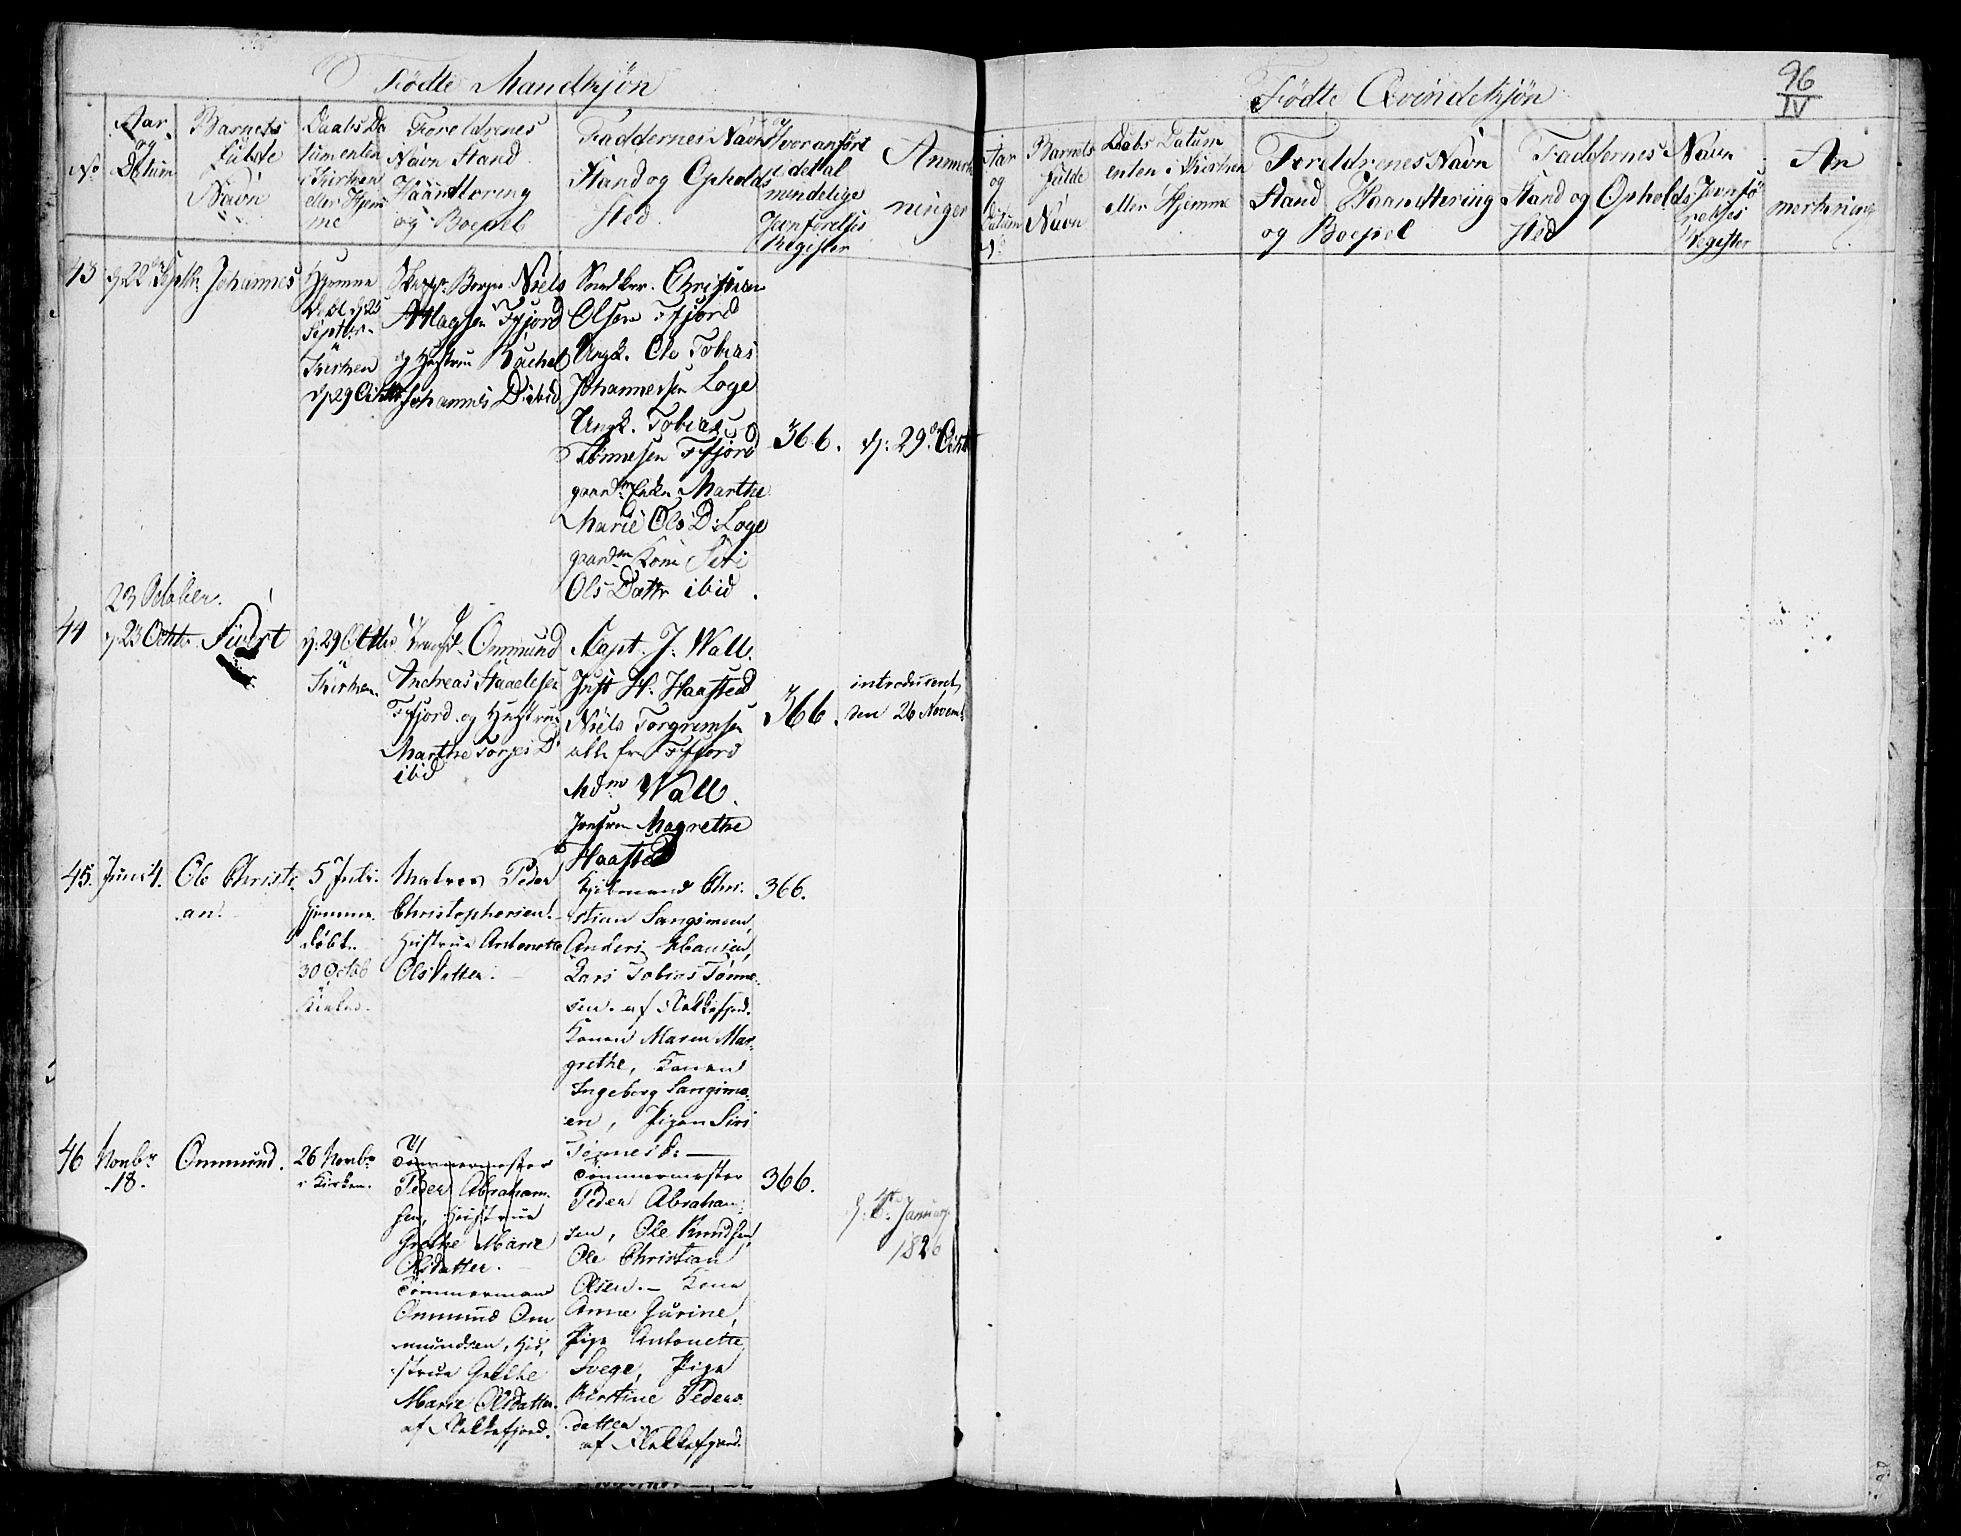 Födte Mandkjøn
No
Aar
og
Datum
Barnets
fulde
Navn
Daabs Da
tumenten
i Kirken
eller Hjem
me
Foreldrenes
Navn Stand
Haandtering
og Boepel
Faddernes Navn
Stand og Opholds
sted
Hvor anført
i det al
mindelige
Jevnførelses
Register
Anmærk
ninger
43
d: 22 Septbr
Johannes
Hjemme
døbt d: 25
Septbr
Kirken
d: 29 Octbr
Borger Niels
Atlagsen Ffjord
og Hustrue Rachel
Johannes D: ibid
Christian
Olsen Ffjord
Ungk. Ole Tobias
Johannessen Loge
Ungk. Tobias
Tønnesen Ffjord
Enke Marthe
Marie Ols D: Loge
Kone Siri
Ols Dattr ibid.
366.
d: 29 Octb
23 October.
44
d: 23 Octbr
Sivert
d: 29 Octbr
Kirken.
Ommund
Andreas Staalesen
Ffjord og Hustrue
Marthe Torjes D:
ibid
Capt. J. Wall.
Just H. Haasted
Niels Torgrimsen
alle fra Ffjord
Mdm Wall.
Jomfru Magrethe
Haasted
366.
introduceret
den 26 Novemb
45.
Juni 4.
Ole Christi
an.
5 Juli.
hjemme
døbt.
30 Octob
Kirken.
Matros Peder
Christophersen.
Hustrue Antonette
Olsdatter.
Kjøbmand Chri-
stian Sangsmoen,
Anders Hansen,
Lars Tobias Tønne-
sen. af Flekkefjord.
Konen Maren Mar-
grethe, Konen
Ingeborg Sangsmo-
en, Pigen Siri
Tønnesd:
366.
46
Novbr
18.
Ommund.
26 Novbr
i Kirken.
Tømmermester
Peder Abraham-
sen, Hustrue
Grethe Marie
Olsdatter.
Tømmermand
Ommund Om
mundsen, Hu-
strue Grethe
Marie Olsdatter.
af Flekkefjord.
Tømmermester
Peder Abraham-
sen, Ole Knudsen,
Ole Christian
Olsen. - Kone
Anne Gurine,
Pige Antonette
Svege, Pige
Kirstine Peders
datter
af Flekkefjord.
366.
Januar
1826
Födte Qvindekjøn
96
IV
Aar
og
Datum
Barnets
fulde
Navn
Daabs Datum
enten i Kirken
eller Hjemme
Foreldrenes Navn
Stand Haandtering
og Boepel
Faddernes Navn
Stand og Opholds
sted
Jevnfø
relses
Register
An
mærkning